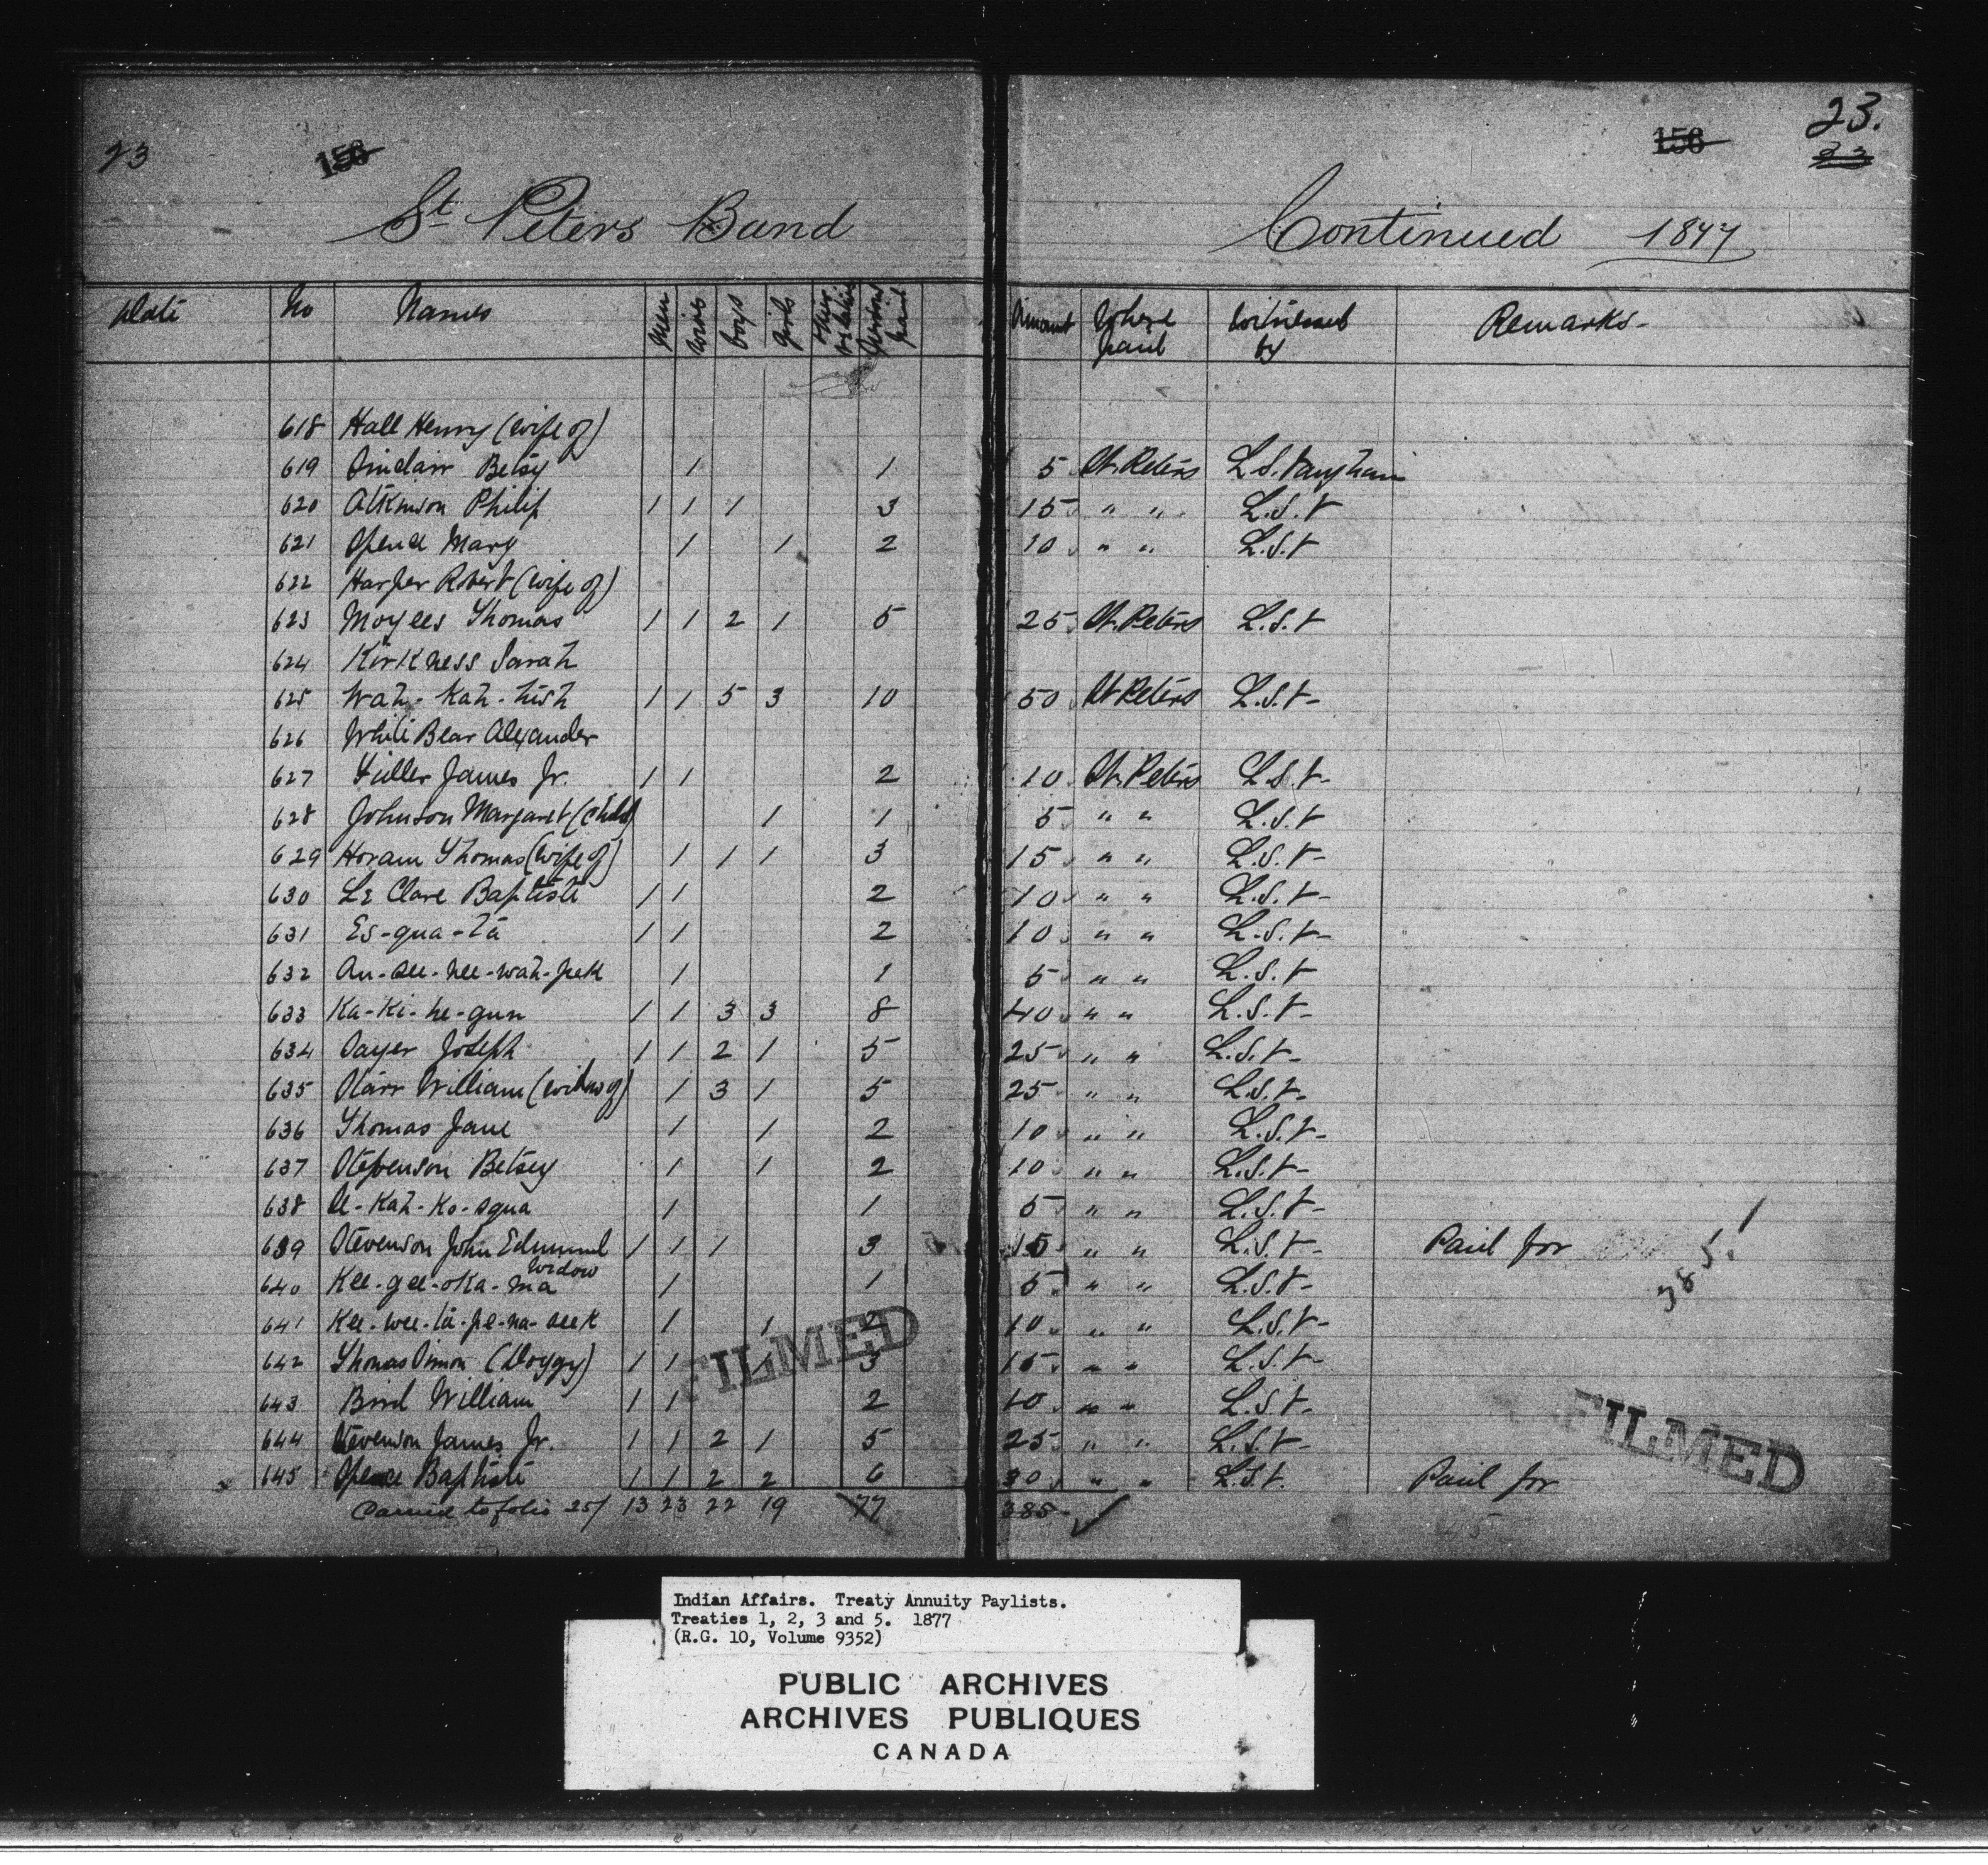 23 156 156 23.
23
St Peters Band Continued 1877
Date No Names Men Wives boys girls Other Relations Persons paid Amount Where paid Witnessed by Remarks-
618 Hall Henry (wife of)
619 Sinclair Betsy 1 1 5 St. Peters L.S. Vaughan
620 Atkinson Philip 1 1 1 3 15 " " L.S.V
621 Spence Mary 1 1 2 10 " " L.S.V
622 Harper Robert (wife of)
623 Moyees Thomas 1 1 2 1 5 25 St. Peters L.S.V
624 Kirkness Sarah
625 Wah-Kah-hish 1 1 5 3 10 50 St Peters L.S.V-
626 White Bear Alexander
627 Fidler James Jr. 1 1 2 10 St. Peters L.S.V-
628 Johnson Margaret (child) 1 1 5 " " L.S.V
629 Horam Thomas (wife of) 1 1 1 3 15 " " L.S.V-
630 Le Clare Baptiste 1 1 2 10 " " L.S.V-
631 Es-qua-tā 1 1 2 10 " " L.S.V-
632 An-see-nee-wah-pek 1 1 5 " " L.S.V-
633 Ka-Ki-he-gun 1 1 3 3 8 40 " " L.S.V-
634 Sayer Joseph 1 1 2 1 5 25 " " L.S.V-
635 Starr William (widow of) 1 3 1 5 25 " " L.S.V-
636 Thomas Jane 1 1 2 10 " " L.S.V-
637 Stevenson Betsey 1 1 2 10 " " L.S.V-
638 A-Kah-Ko-squa 1 1 5 " " L.S.V-
639 Stevenson John Edmund 1 1 1 3 15 " " L.S.V- Paid for
385.
640 Kee-gee-oka-ma widow 1 1 5 " " L.S.V-
641 Kee-wee-tā-pe-na-seek 1 1 2 10 " " L.S.V-
642 Thomas Simon (Doggy) 1 1 1 3 15 " " L.S.V-
643 Bird William 1 1 2 10 " " L.S.V-
644 Stevenson James Jr. 1 1 2 1 5 25 " " L.S.V-
645 Spence Baptiste 1 1 2 2 6 30 " " L.S.V. Paid for
Carried to folio 25/ 13 23 22 19 77 385
FILMED
FILMED
Indian Affairs. Treaty Annuity Paylists.
Treaties 1, 2, 3 and 5. 1877
(R.G. 10, Volume 9352)
PUBLIC ARCHIVES
ARCHIVES PUBLIQUES
CANADA